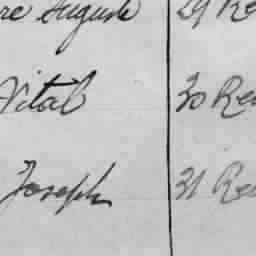 re Auguste 29 Re
Vital 30 Rec
Joseph 31 Rec